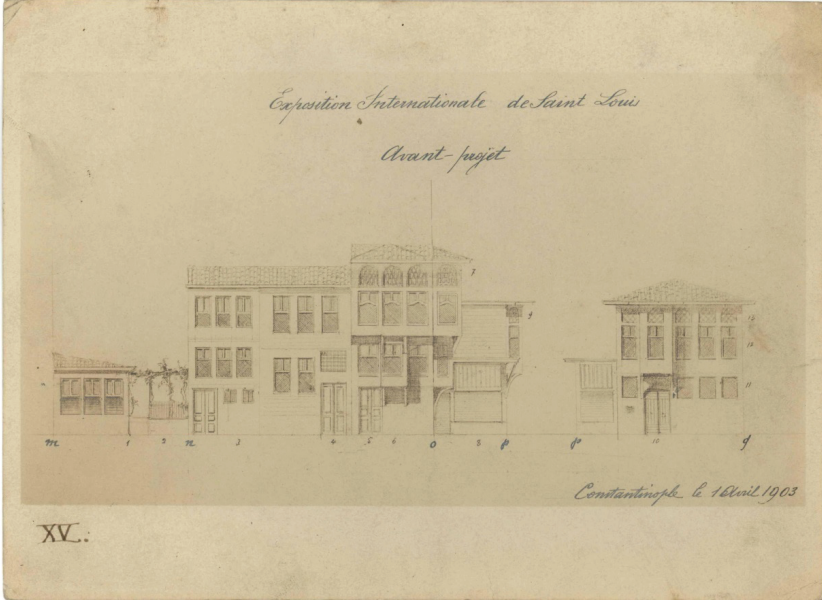 Exposition Internationale de Saint Loui
Avant-projet
7
m 1 2 n 3 4 5 6 o 8 p p 10 q
11
Constantinople le 1 Avril 1903
XV.: